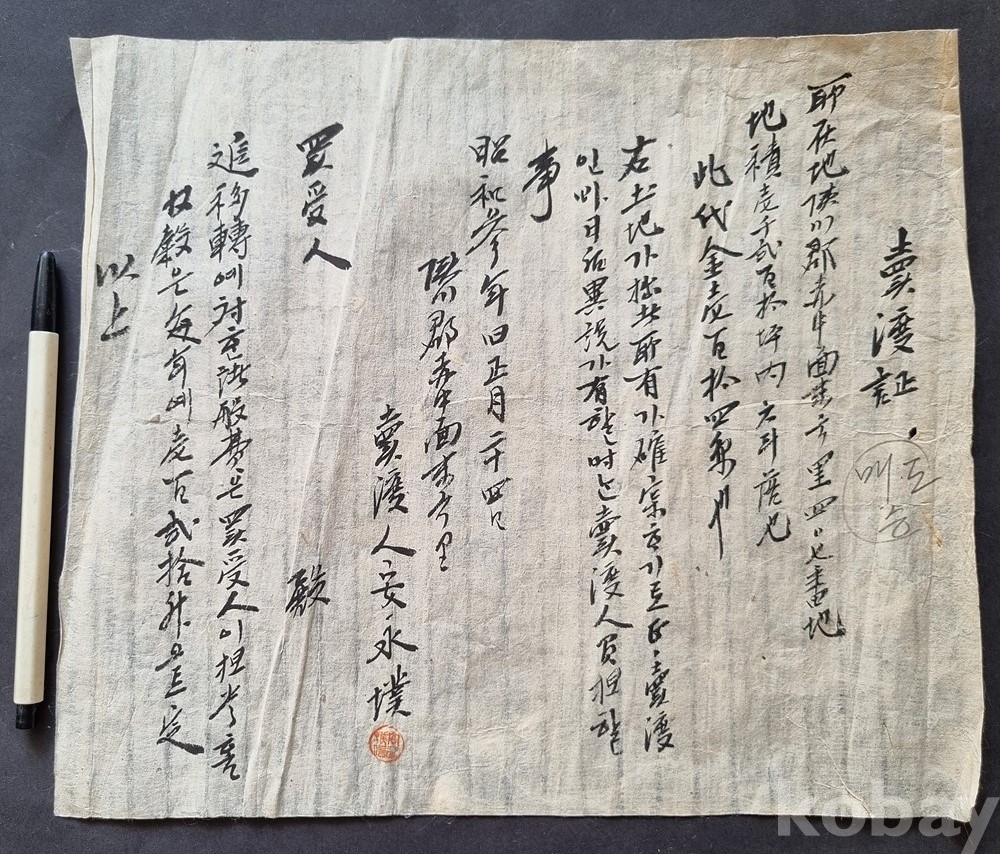 賣渡証
매도증
所在地陜川郡赤中面 里四〇七番地
地積壹千貳百拾坪內六斗落也
此代金壹百拾四 
右土地가 此所有가確 賣渡
日後異說가有할時는賣渡人負担할
事
昭和參年旧正月二十四日
陜川郡赤中面 里
賣渡人 安永墣
買受人 殿
追移轉에対 諸般費는買受人이担 
 穀은每年에壹百貳拾升으로定
以上
kobay